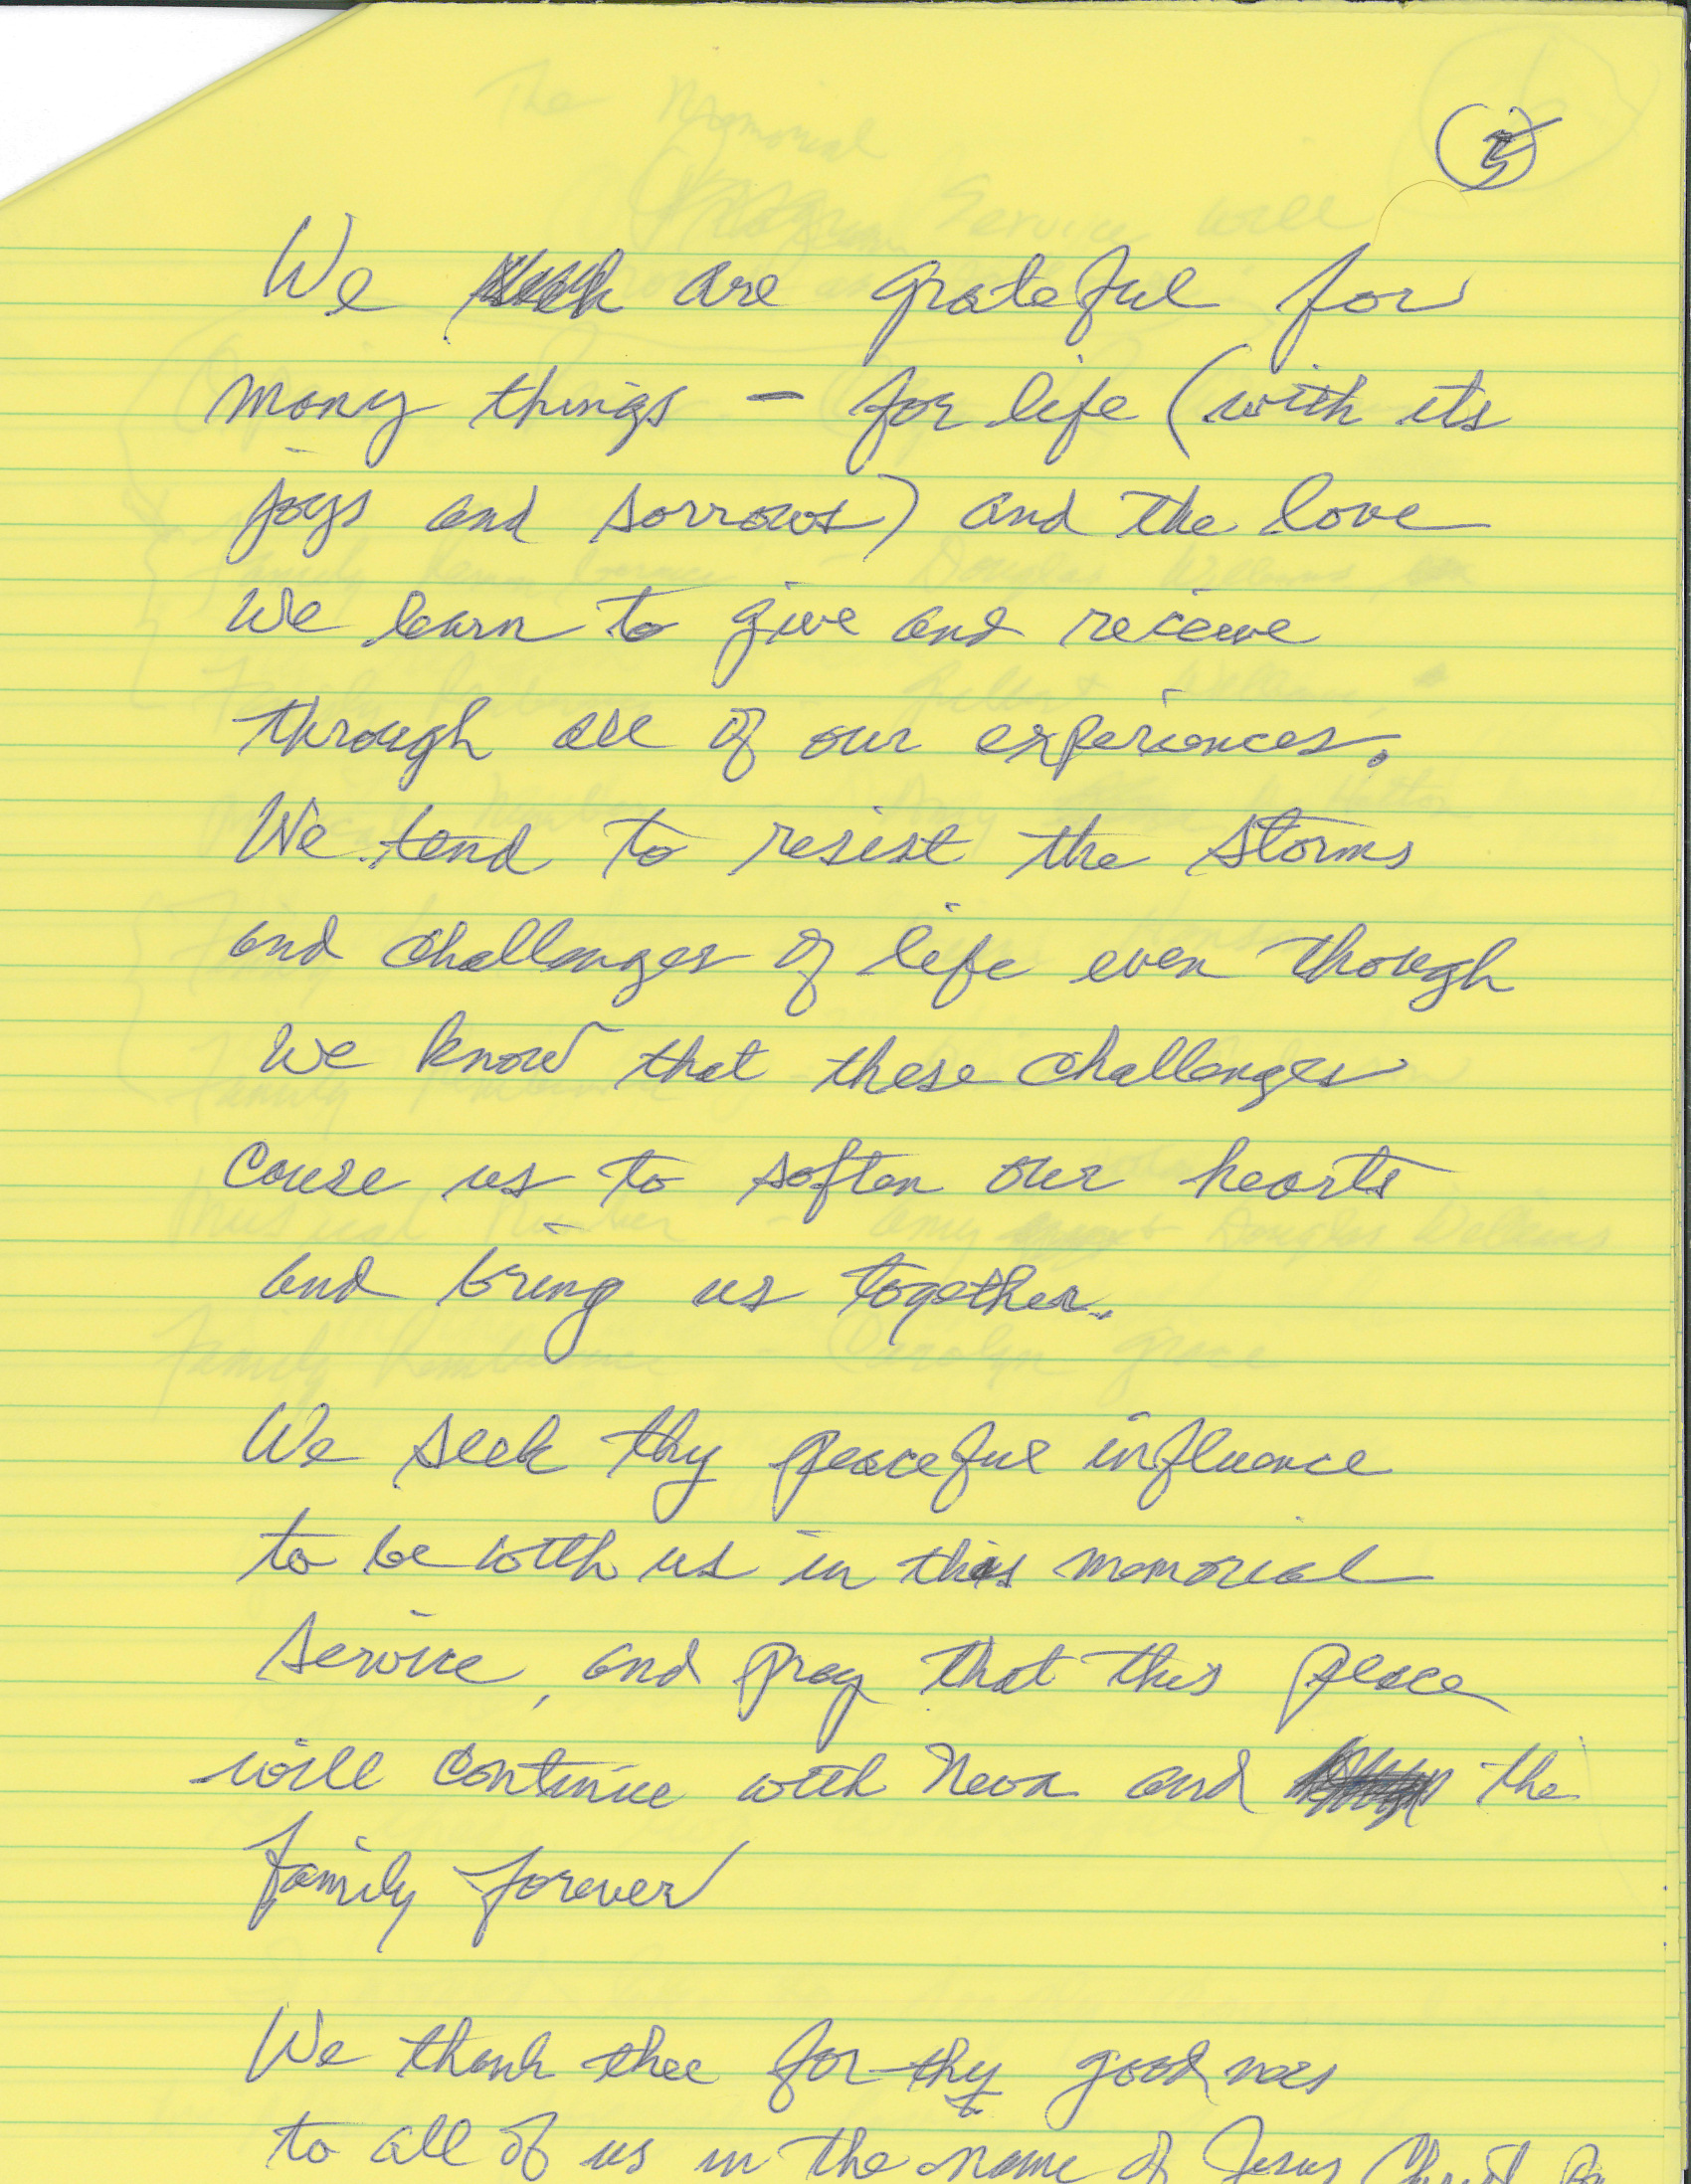 5
We are grateful for
many things - for life (with its
joys and sorrows) and the love
we learn to give and receive
through all of our experiences.
We tend to resist the storms
and challenges of life even though
we know that these challenges
cause us to soften our hearts
and bring us together.
We seek thy peaceful influence
to be with us in this memorial
service, and pray that this peace
will continue with Neva and the
family forever
We thank thee for thy goodness
to all of us in the name of Jesus Christ